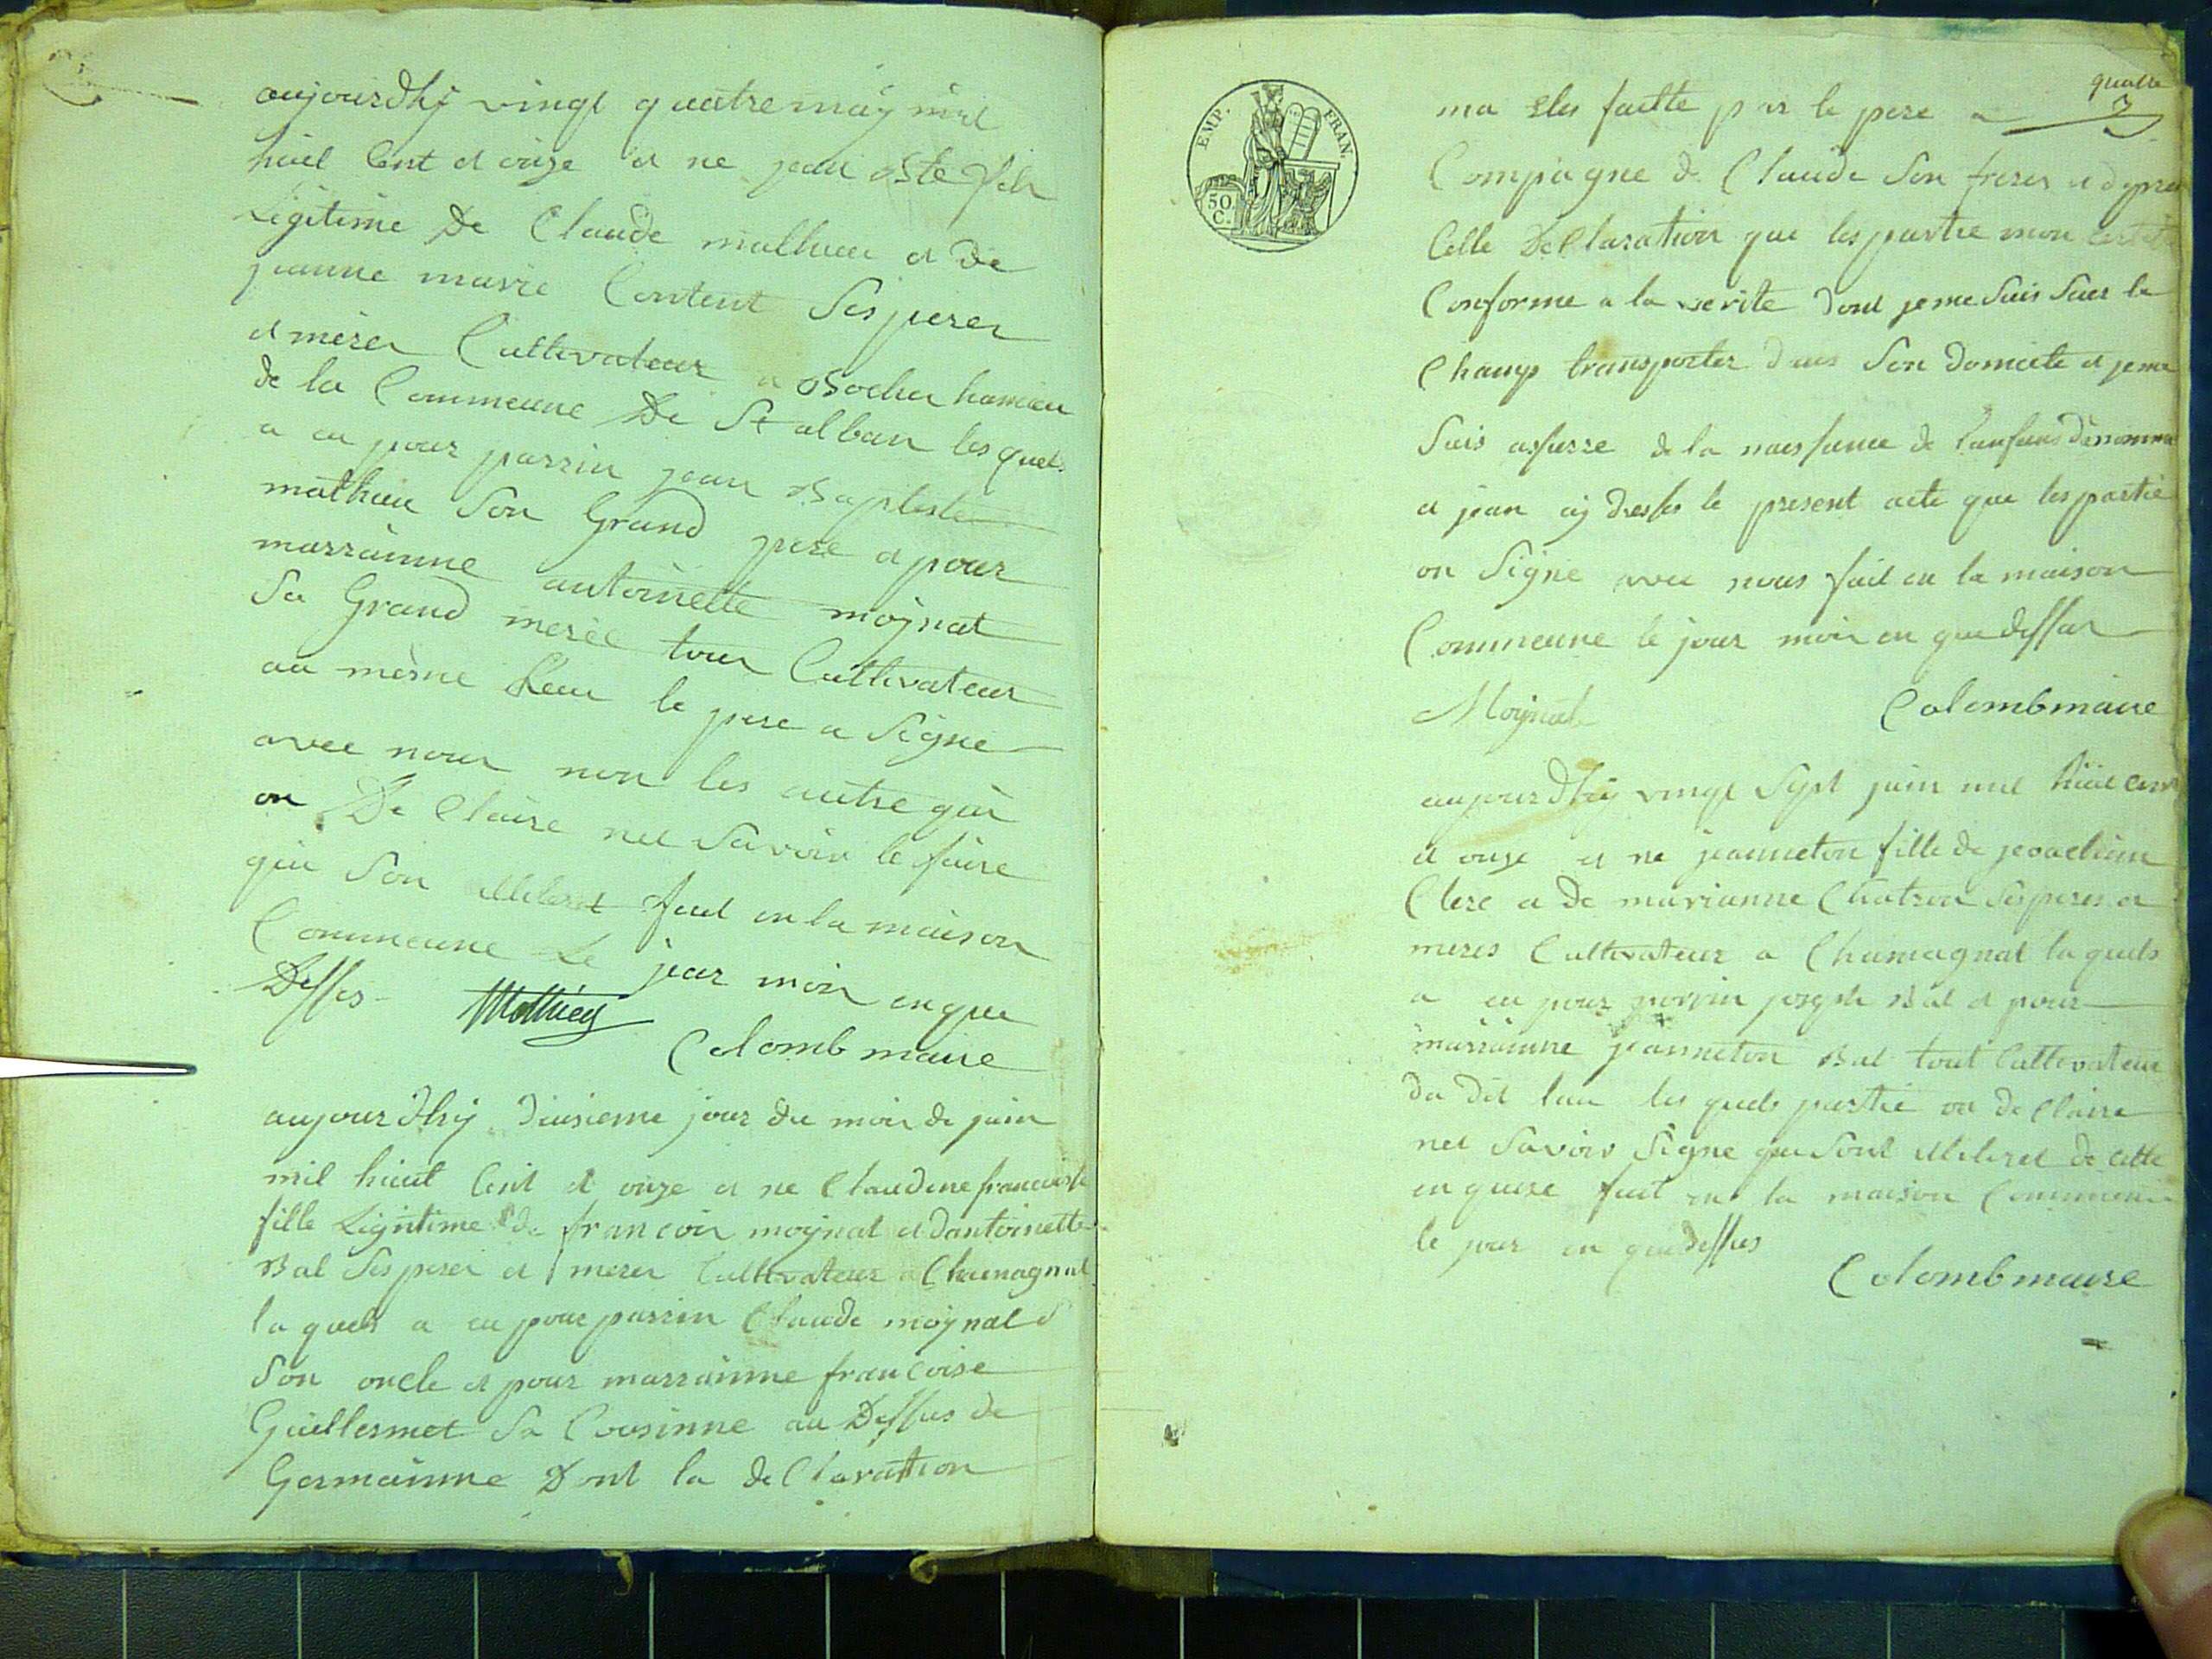 aujourdhÿ vingt quatre maÿ mil
huit Cent et onze et ne jean Bte fils
Legitime De Claude mathieu et de
jeanne marie Content Ses perer
et merer Cultivateur a Bocher hameau
de la Commeune De St alban les quels
a eu pour parrin jean Baptiste
mathieu Son Grand pere et pour
marrainne antoinette moÿnat
Sa Grand mere tour Cultivateur
au même lieu le pere a Signe
avec nour non les autre qui
on De Claire nel Savoir le faire
qui Son illiteret fait en la maison
Commeune Le jour moir en que
Desses Mathieu
Colomb maire
aujourdhÿ diusieme jour du moir de juin
mil huit Cent et onze et ne Claudine francoise
fille Legitime de francoir moÿnat et dantoinette
Bal Ses perer et merer Cultivateur a Chamagnat
la quels a eu pour parrin Claude moÿnat
Son oncle et pour marrainne francoise
Guillermet Sa Cousinne au Dessus de
Germainne Dont la de Claration
quatre
ma etes faitte par le pere
Compagne de Claude Son frerer
Celle De Claration que les partie mon
Conforme a la verite dont je me Suis Sur le
Champ transporter dans Son domicile et je me
Suis assurre de la naissance de lanfans
et jean aÿ dresses le present acte que les partie
on Signe avec nous fait en la maison
Commeune le jour moir en que dessus
Moÿnat Colomb maire
aujourdhuÿ vingt Sept juin mil huit Cent
et onze et ne jeanneton fille de
Clerc et de marianne Chatron Ses peres et
meres Cultivateur a Chamagnat la quels
a eu pour parrin joseph Bal et pour
marrainne jeanneton Bal tout Cultivateur
du dit lieu les quels partie on de Claire
nel Savoir Signe que Sont illiteret de cette
en quere fait en la maison Commeune
le jour en que dessus
Colomb maire
EMP. FRAN.
50 C.